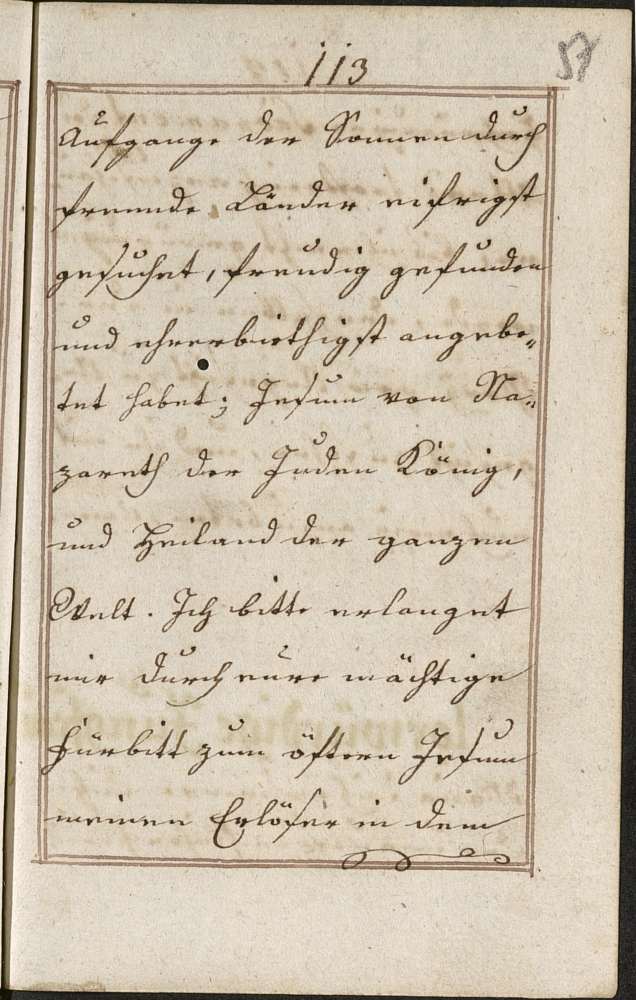 113
57
Aufgange der Sonnen durch
fremde Länder eifrigst
gesuchet, freudig gefunden
und ehrerbiethigst angebe„
tet habet; Jesum von Na„
zareth der Juden König,
und Heiland der ganzen
Welt. Ich bitte erlanget
mir durch eure mächtige
Fürbitt zum öftern Jesum
meinen Erlöser in dem